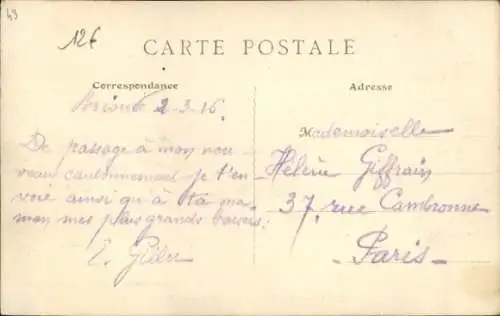 43
12€
CARTE POSTALE
Correspondance
Adresse
2-3-16.
De passage à mon nou-
veau cantonnement je t'en
voie ainsi qu'à ta ma
man mes plus grands baisers.
Mademoiselle
Hélène Giffrain
37, rue Cambronne
- Paris -